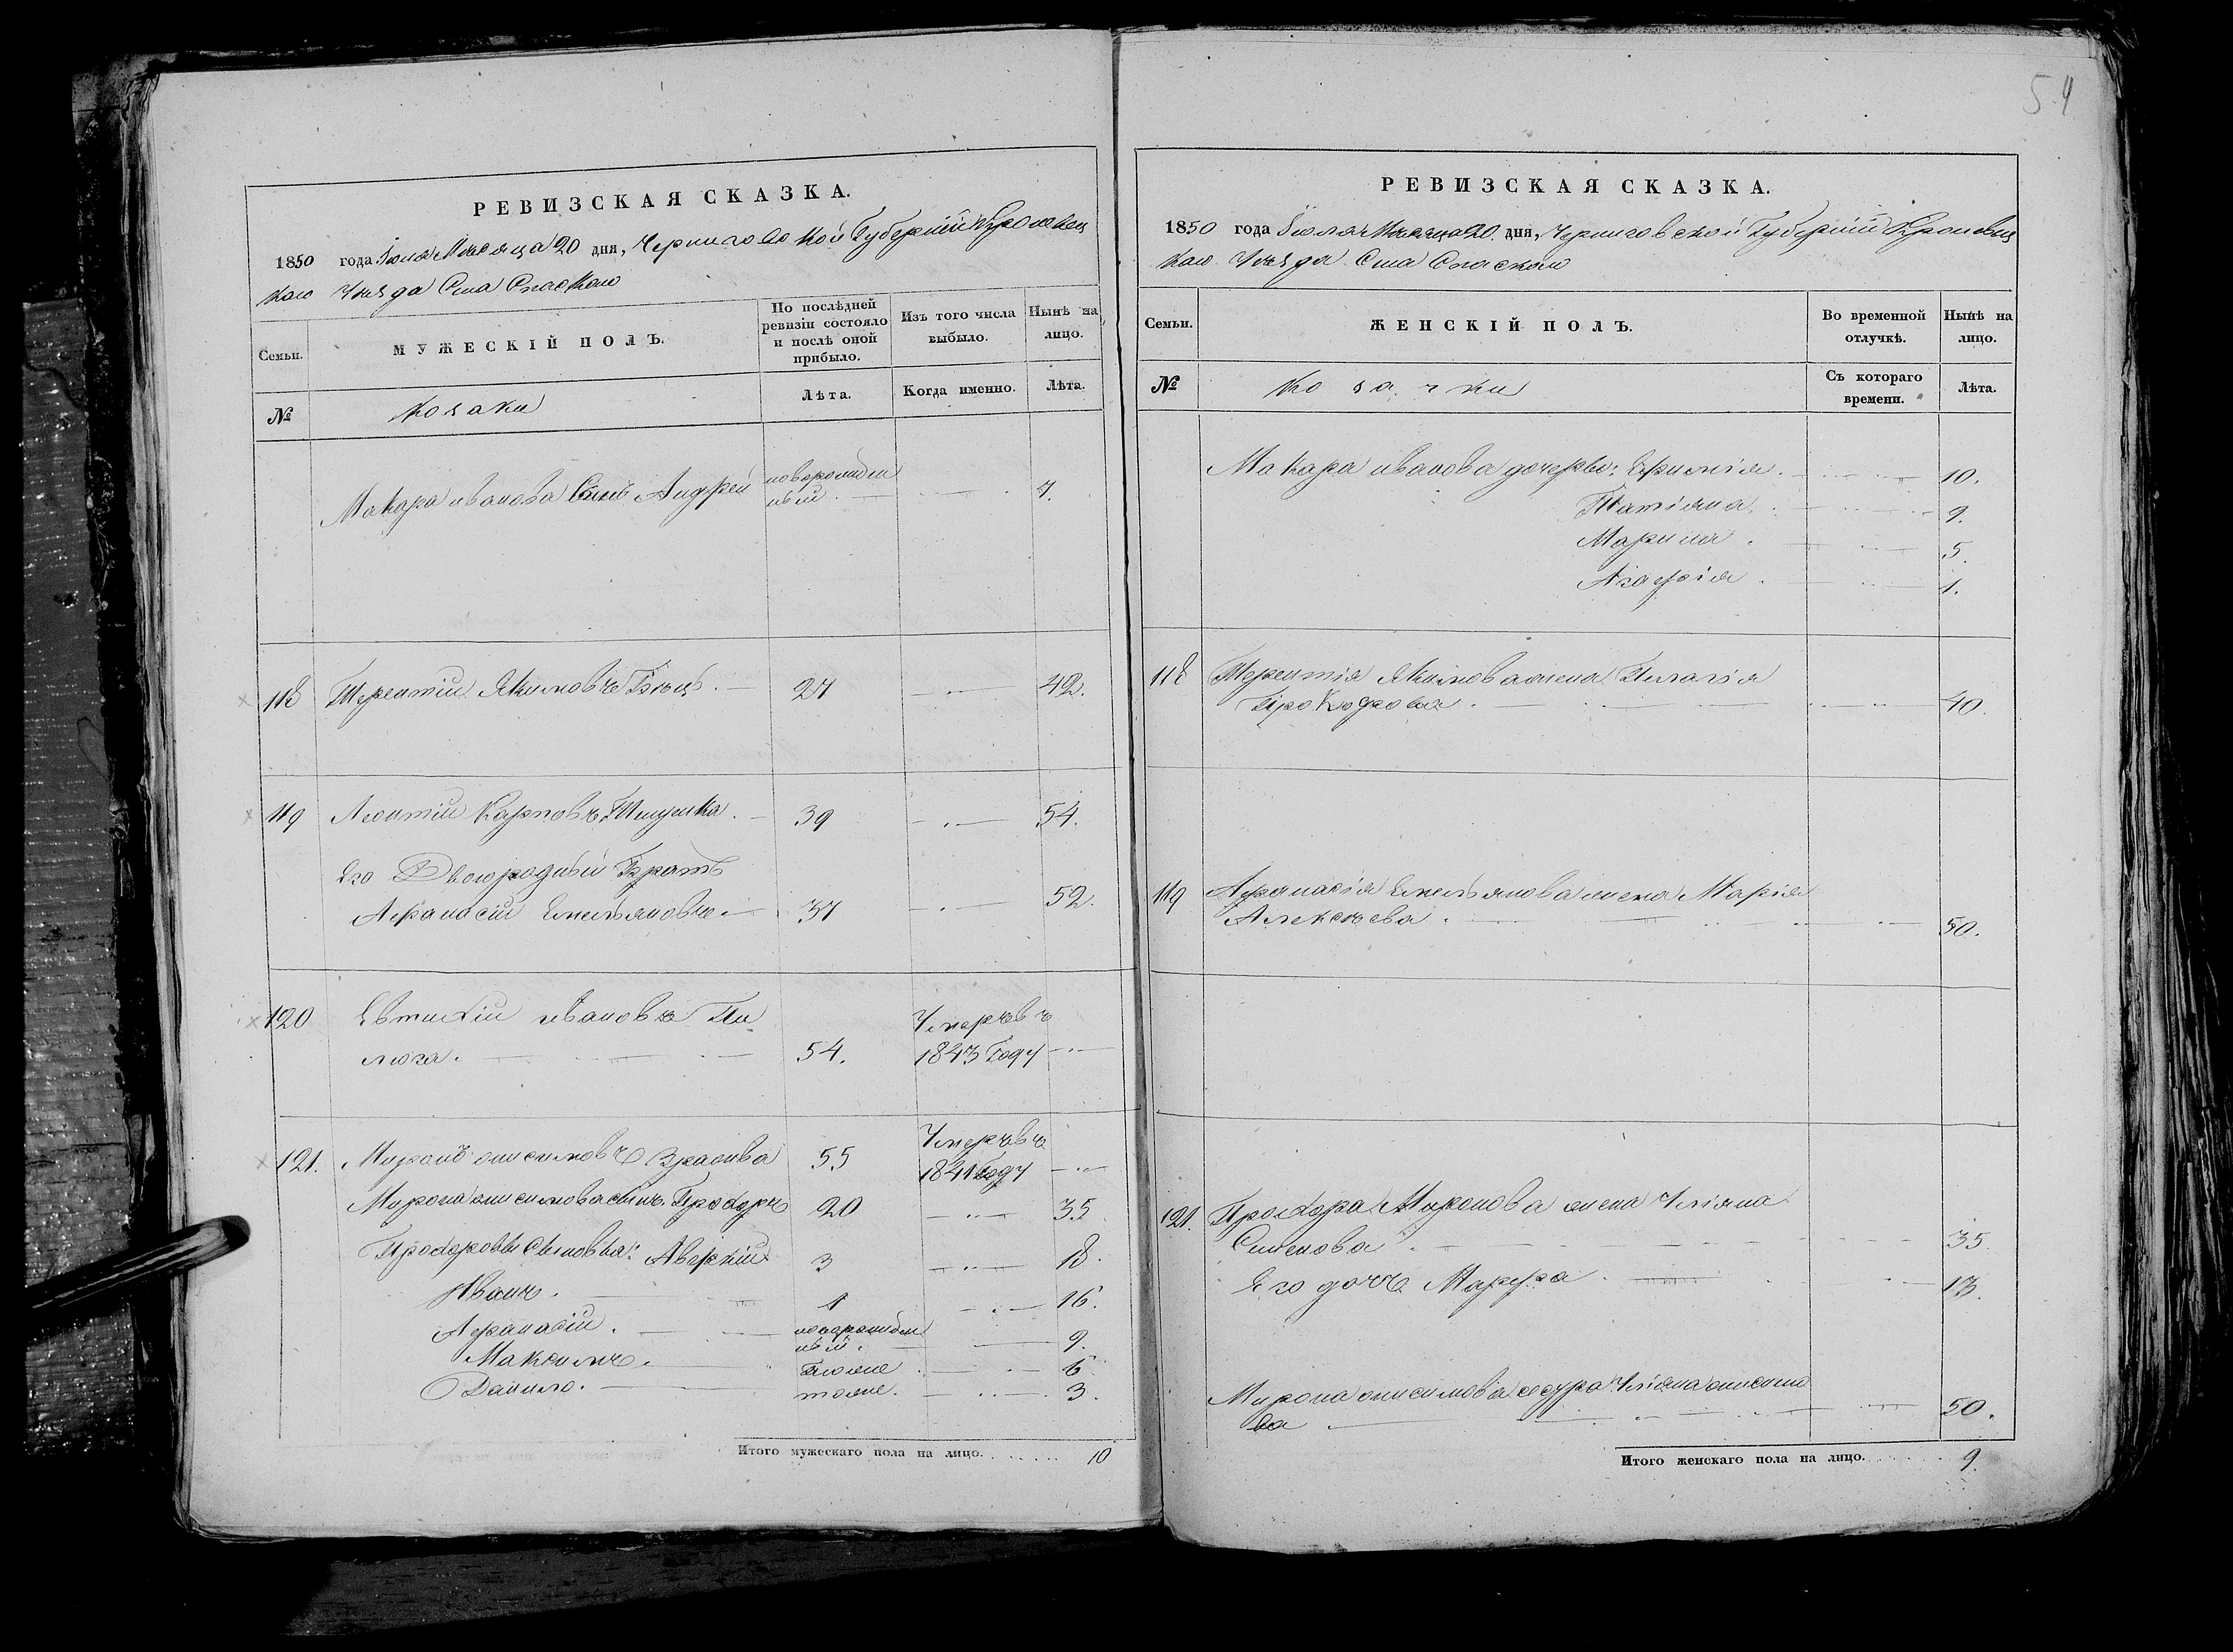 54
РЕВИЗСКАЯ СКАЗКА.
1850 года Июля Месяца 20 дня, Черниговской Губерніи Кролевец
каго Уѣзда Села Спаскаго
Семьи.
МУЖЕСКІЙ ПОЛЪ.
По послѣдней ревизіи состояло и послѣ оной прибыло.
Изъ того числа выбыло.
Нынѣ на лицо.
№
Козаки
Лѣта.
Когда именно.
Лѣта.
Макара иванова Сынъ Андрей новорожден ный 4.
118 Терентій Якимовъ 27 42.
119 Леонтій Карповъ 39 54.
Его Двоюродный Братъ
Афанасій Емельяновъ 37 52.
120 Евтихій ивановъ Пи Умеръ въ
люга. 54. 1843 Году
121. Миронъ онисимовъ Умеръ въ
55 1841 Году
Мирона онисимова сынъ Прохоръ 20 35
Прохоровы Сыновья: Аверкій 3 18.
Иванъ. 1 16.
Афанасій. новорожден ный. 9.
Максимъ. тоже 6
Данило. тоже. 3.
Итого мужескаго пола на лицо. 10
РЕВИЗСКАЯ СКАЗКА.
1850 года Июля Месяца 20 дня, Черниговской Губерніи Кролевец
каго Уѣзда Села Спаскаго
Семьи.
ЖЕНСКІЙ ПОЛЪ.
Во временной отлучкѣ.
Нынѣ на лицо.
№
Козачки
Съ котораго времени.
Лѣта.
Макара иванова дочери: Ефимія. 10.
Татіяна. 9.
Марина. 5.
Агафія. 1.
118 Терентія Якимова жена Пилагія
Прокофова. 40.
119 Афанасія Емельянова жена Марія
Алексѣева. 50.
121. Прохора Миронова жена Уліяна
Семенова. 35.
Его дочь Марфа. 13.
Мирона онисимова сестра Уліяна онисимо
ва 50.
Итого женскаго пола на лицо. 9.